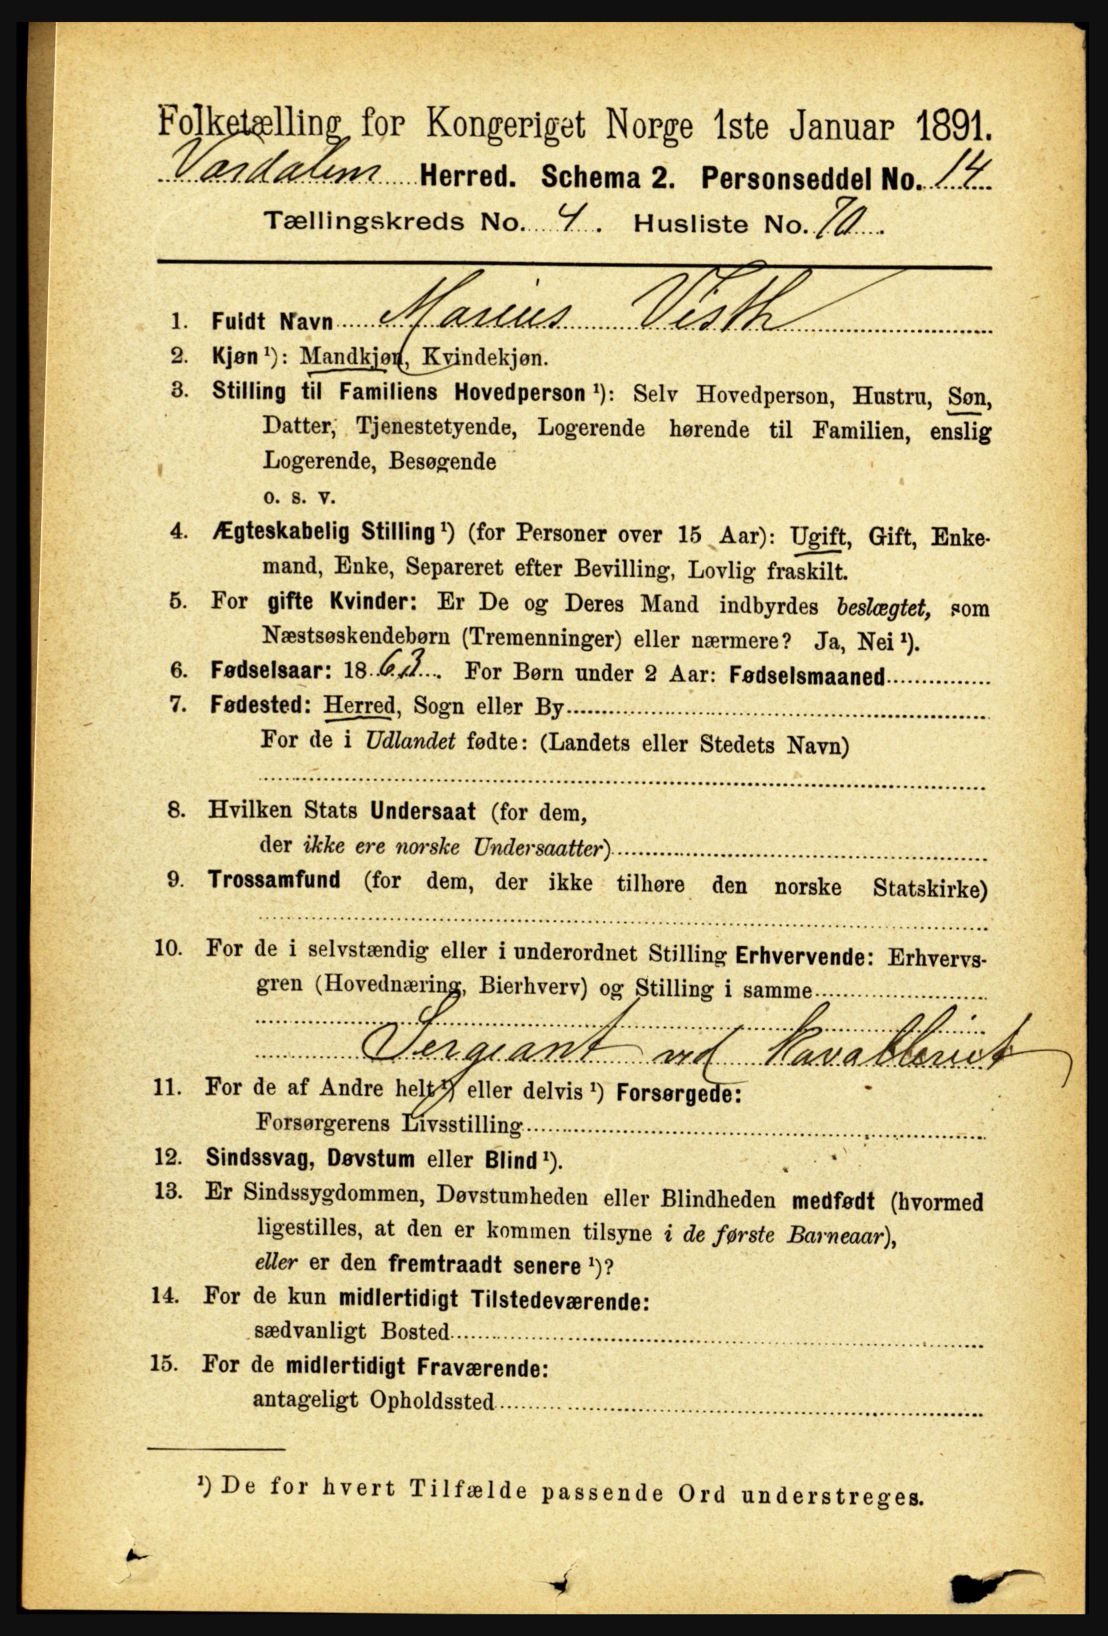 Folketælling for Kongeriget Norge 1ste Januar 1891.
Værdalens Herred. Schema 2. Personseddel No. 14
Tællingskreds No. 4. Husliste No. 70.
1. Fuldt Navn Marius Visth
2. Kjøn ¹): Mandkjøn, Kvindekjøn.
3. Stilling til Familiens Hovedperson ¹): Selv Hovedperson, Hustru, Søn,
Datter, Tjenestetyende, Logerende hørende til Familien, enslig
Logerende, Besøgende
o. s. v.
4. Ægteskabelig Stilling ¹) (for Personer over 15 Aar): Ugift, Gift, Enke-
mand, Enke, Separeret efter Bevilling, Lovlig fraskilt.
5. For gifte Kvinder: Er De og Deres Mand indbyrdes beslægtet, som
Næstsøskendebørn (Tremenninger) eller nærmere? Ja, Nei ¹).
6. Fødselsaar: 1863. For Børn under 2 Aar: Fødselsmaaned
7. Fødested: Herred, Sogn eller By
For de i Udlandet fødte: (Landets eller Stedets Navn)
8. Hvilken Stats Undersaat (for dem,
der ikke ere norske Undersaatter)
9. Trossamfund (for dem, der ikke tilhøre den norske Statskirke)
10. For de i selvstændig eller i underordnet Stilling Erhvervende: Erhvervs-
gren (Hovednæring, Bierhverv) og Stilling i samme
Sergeant ved Kavalleriet
11. For de af Andre helt ¹) eller delvis ¹) Forsørgede:
Forsørgerens Livsstilling
12. Sindssvag, Døvstum eller Blind ¹).
13. Er Sindssygdommen, Døvstumheden eller Blindheden medfødt (hvormed
ligestilles, at den er kommen tilsyne i de første Barneaar),
eller er den fremtraadt senere ¹)?
14. For de kun midlertidigt Tilstedeværende:
sædvanligt Bosted
15. For de midlertidigt Fraværende:
antageligt Opholdssted
¹) De for hvert Tilfælde passende Ord understreges.